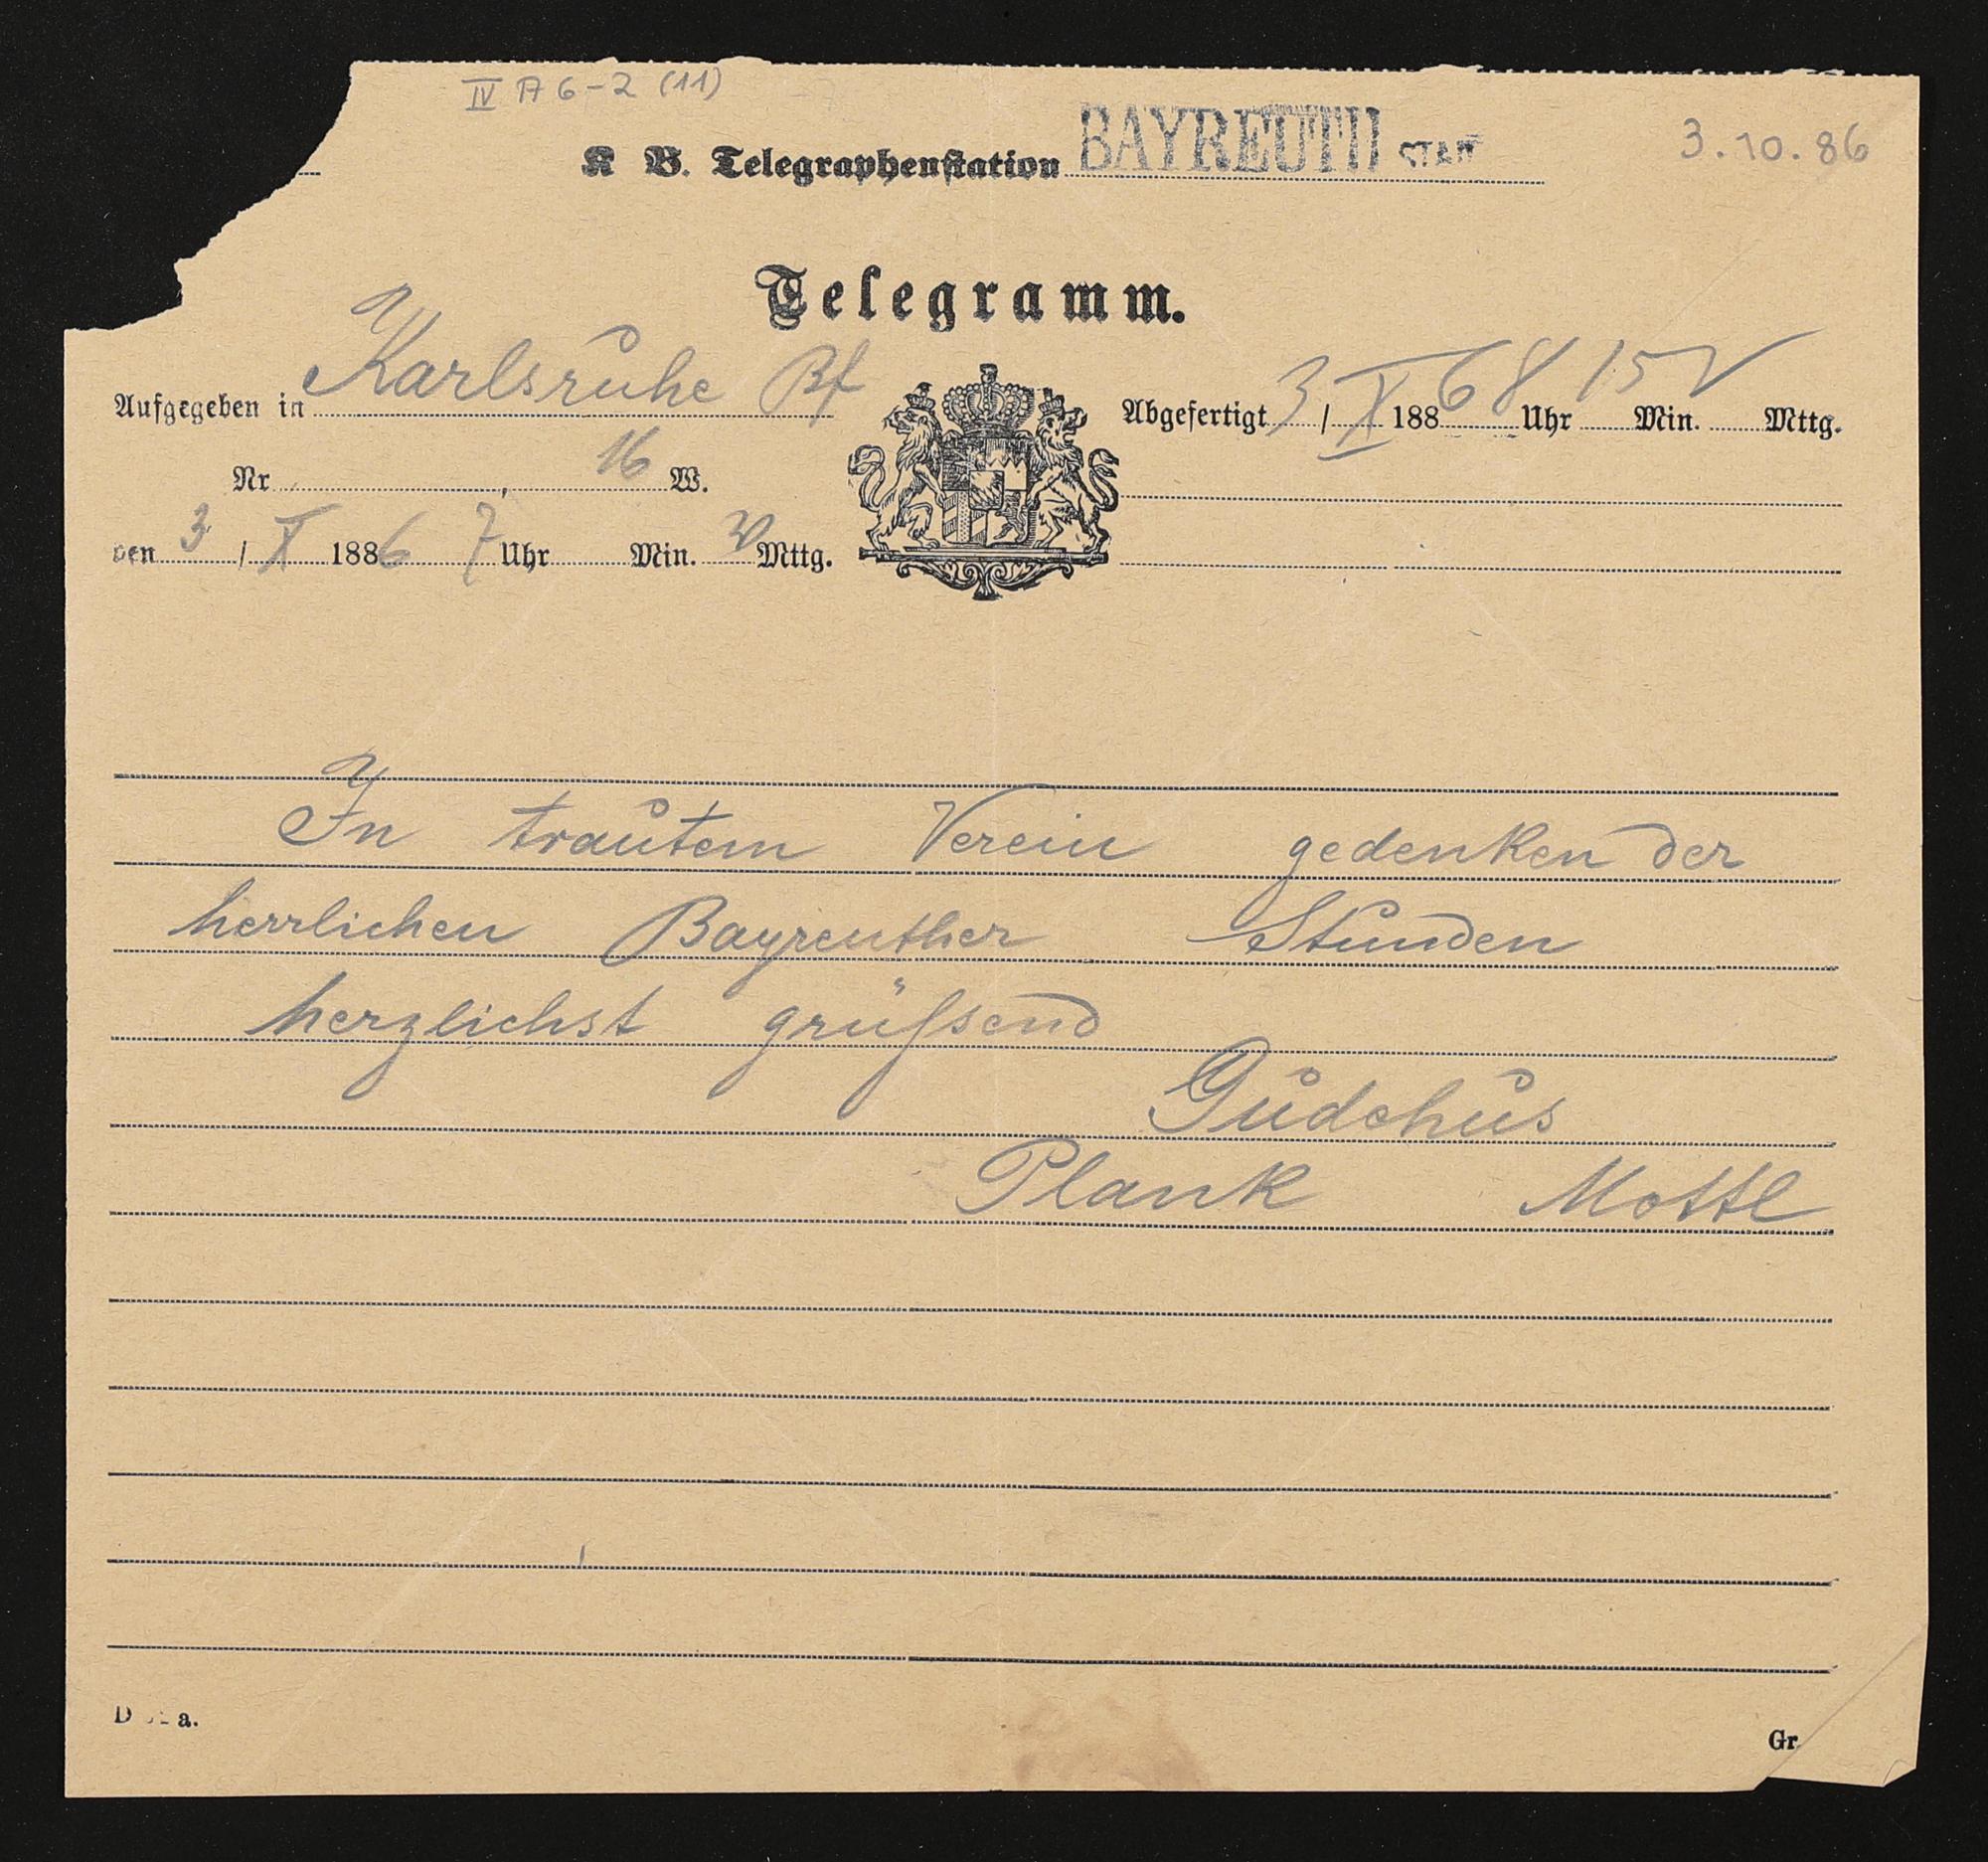 IV A 6-2 (11)
K B. Telegraphenstation BAYREUTH
3.10.86
Telegramm.
Aufgegeben in Karlsruhe Bf
Abgefertigt 3 / X 1886 8 Uhr 15 Min. V Mttg.
Nr 16 W.
den 3 / X 1886 7 Uhr Min. Mttg.
In trautem Verein gedenken der
herrlichen Bayreuther Stunden
herzlichst grüßend
Gudehus
Plank Mottl
Gr